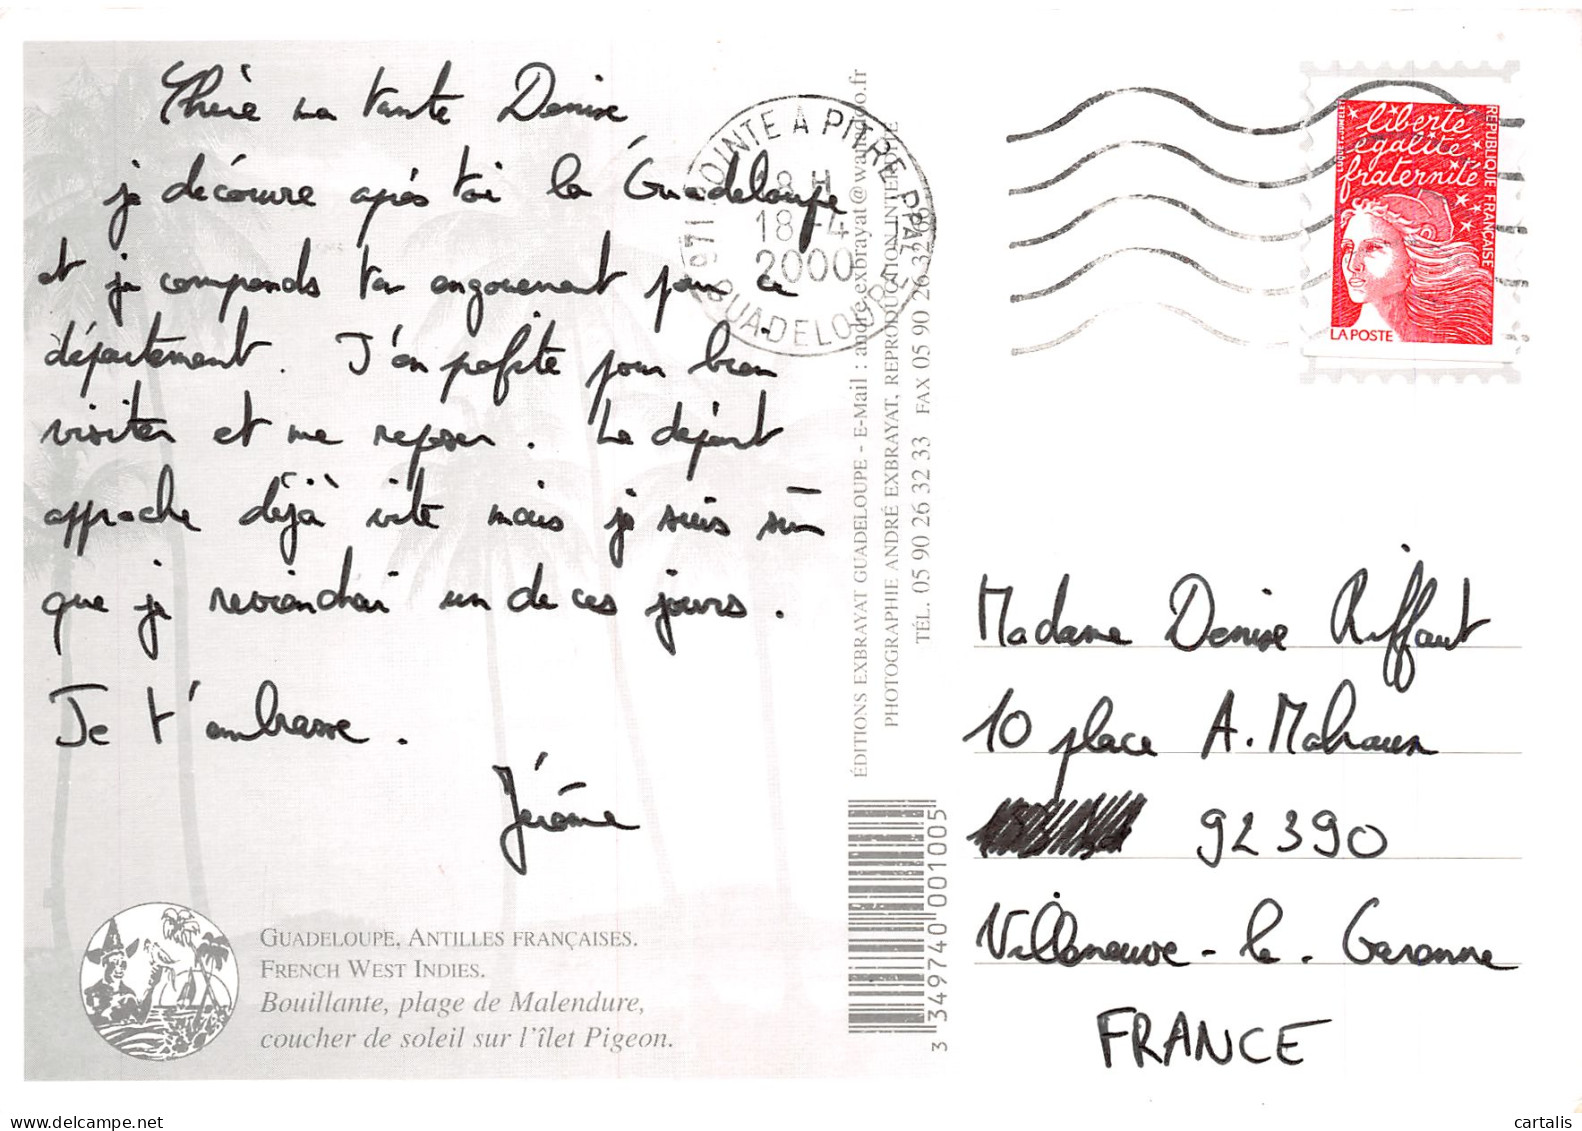 Chère ma tante Denise
je découvre après toi la Guadeloupe
et je comprends ton engouement pour ce
département. J'en profite pour bien
visiter et me reposer. Le départ
approche déjà vite mais je suis sûr
que je reviendrai un de ces jours.
Je t'embrasse.
Jérôme
GUADELOUPE, ANTILLES FRANÇAISES.
FRENCH WEST INDIES.
Bouillante, plage de Malendure,
coucher de soleil sur l'îlet Pigeon.
971 POINTE A PITRE PPAL
18 H
18-4
2000
GUADELOUPE
ÉDITIONS EXBRAYAT GUADELOUPE - E-Mail : andre.exbrayat@wanadoo.fr
PHOTOGRAPHIE ANDRÉ EXBRAYAT, REPRODUCTION INTERDITE
TÉL. 05 90 26 32 33 FAX 05 90 26 32
3 349740 001005
liberté
égalité
fraternité
RÉPUBLIQUE FRANÇAISE
LUQUET d'après JUMELET
LA POSTE
Madame Denise Riffaut
10 place A. Malraux
92390
Villeneuve-la-Garenne
FRANCE
cartalis